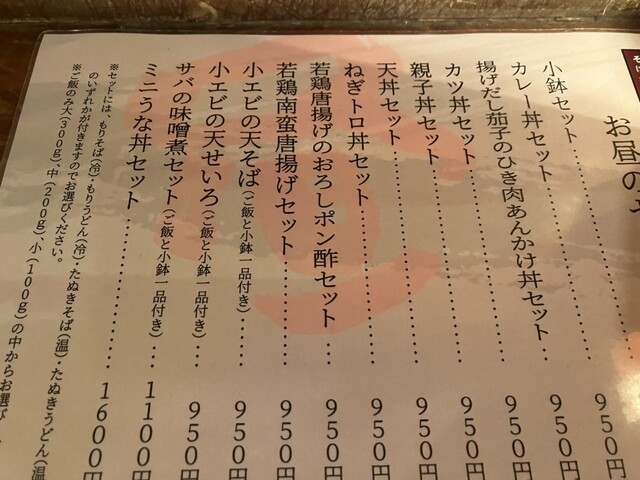 お昼の
小鉢セット…………
カレー丼セット…………950円
揚げだし茄子のひき肉あんかけ丼セット…950円
カツ丼セット…………950円
親子丼セット…………950円
天丼セット…………950円
ねぎトロ丼セット…………950円
若鶏唐揚げのおろしポン酢セット……950円
若鶏南蛮唐揚げセット…………950円
小エビの天そば(ご飯と小鉢一品付き)…950円
小エビの天せいろ(ご飯と小鉢一品付き)…950円
サバの味噌煮セット(ご飯と小鉢一品付き)…1100円
ミニうな丼セット…………1600円
※セットには、もりそば(冷)・もりうどん(冷)・たぬきそば(温)・たぬきうどん(温
のいずれかが付きますのでお選びください。
※ご飯のみ大(300g)、中(200g)、小(100g)の中からお選び